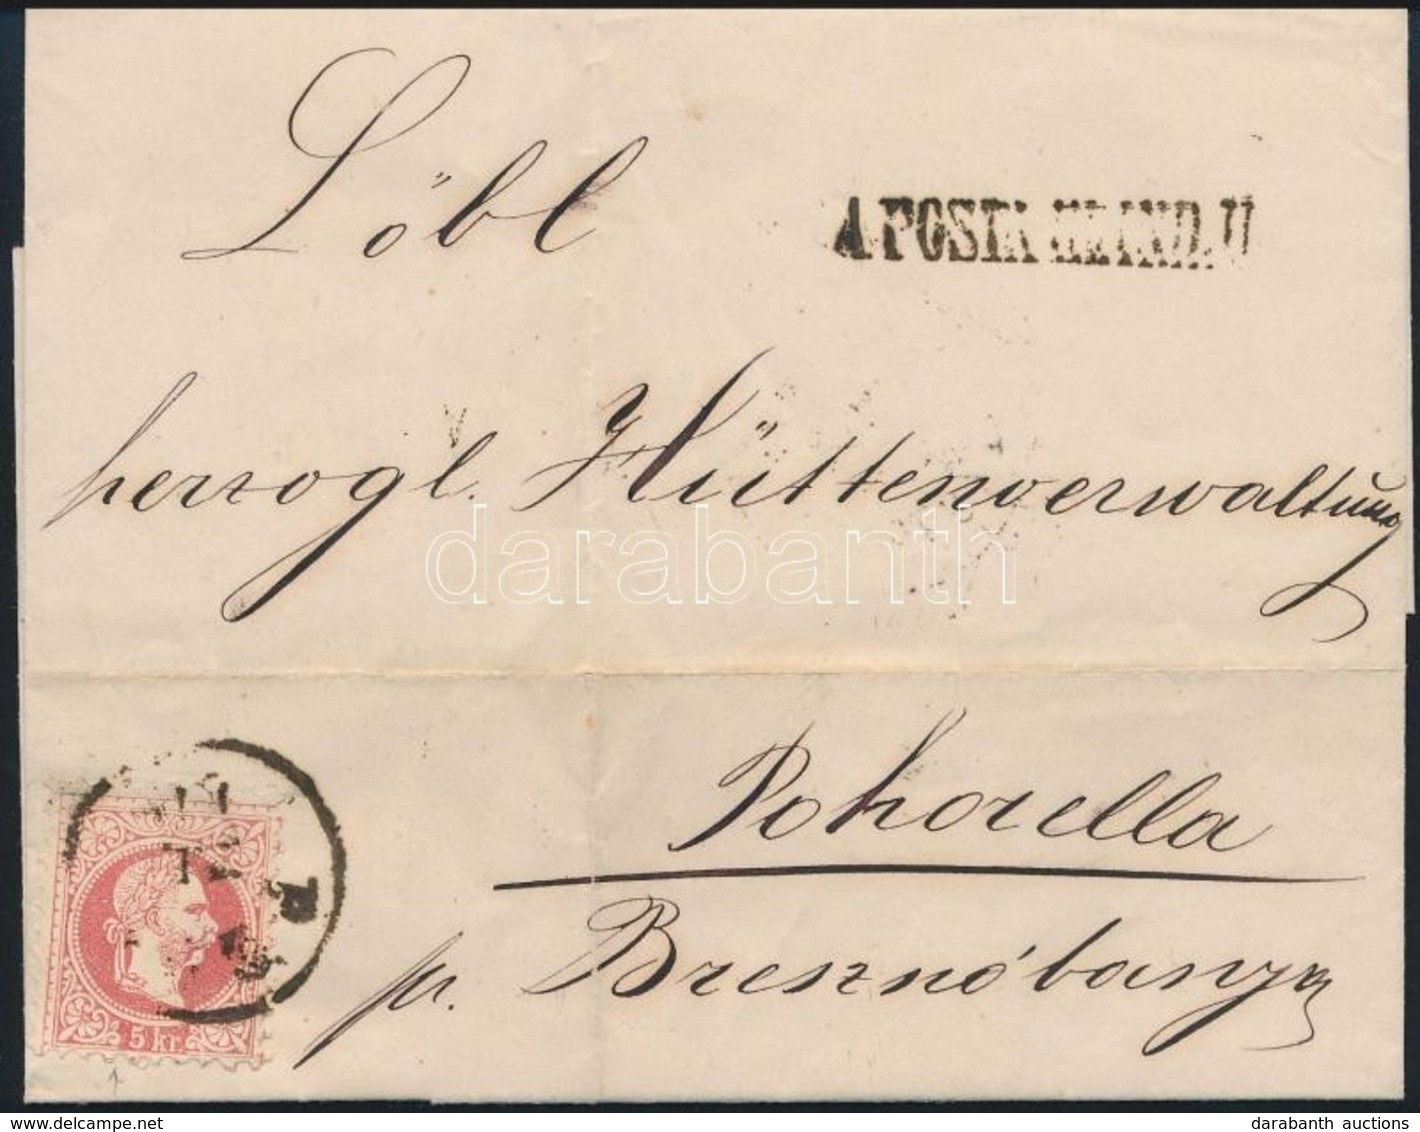 Löbl
A POSTA ELIND.U
herzogl. Hüttenverwaltung
darabanth
Pohorella
pr. Bresznóbanya
5 kr.
www.delcampe.net
darabanth auctions